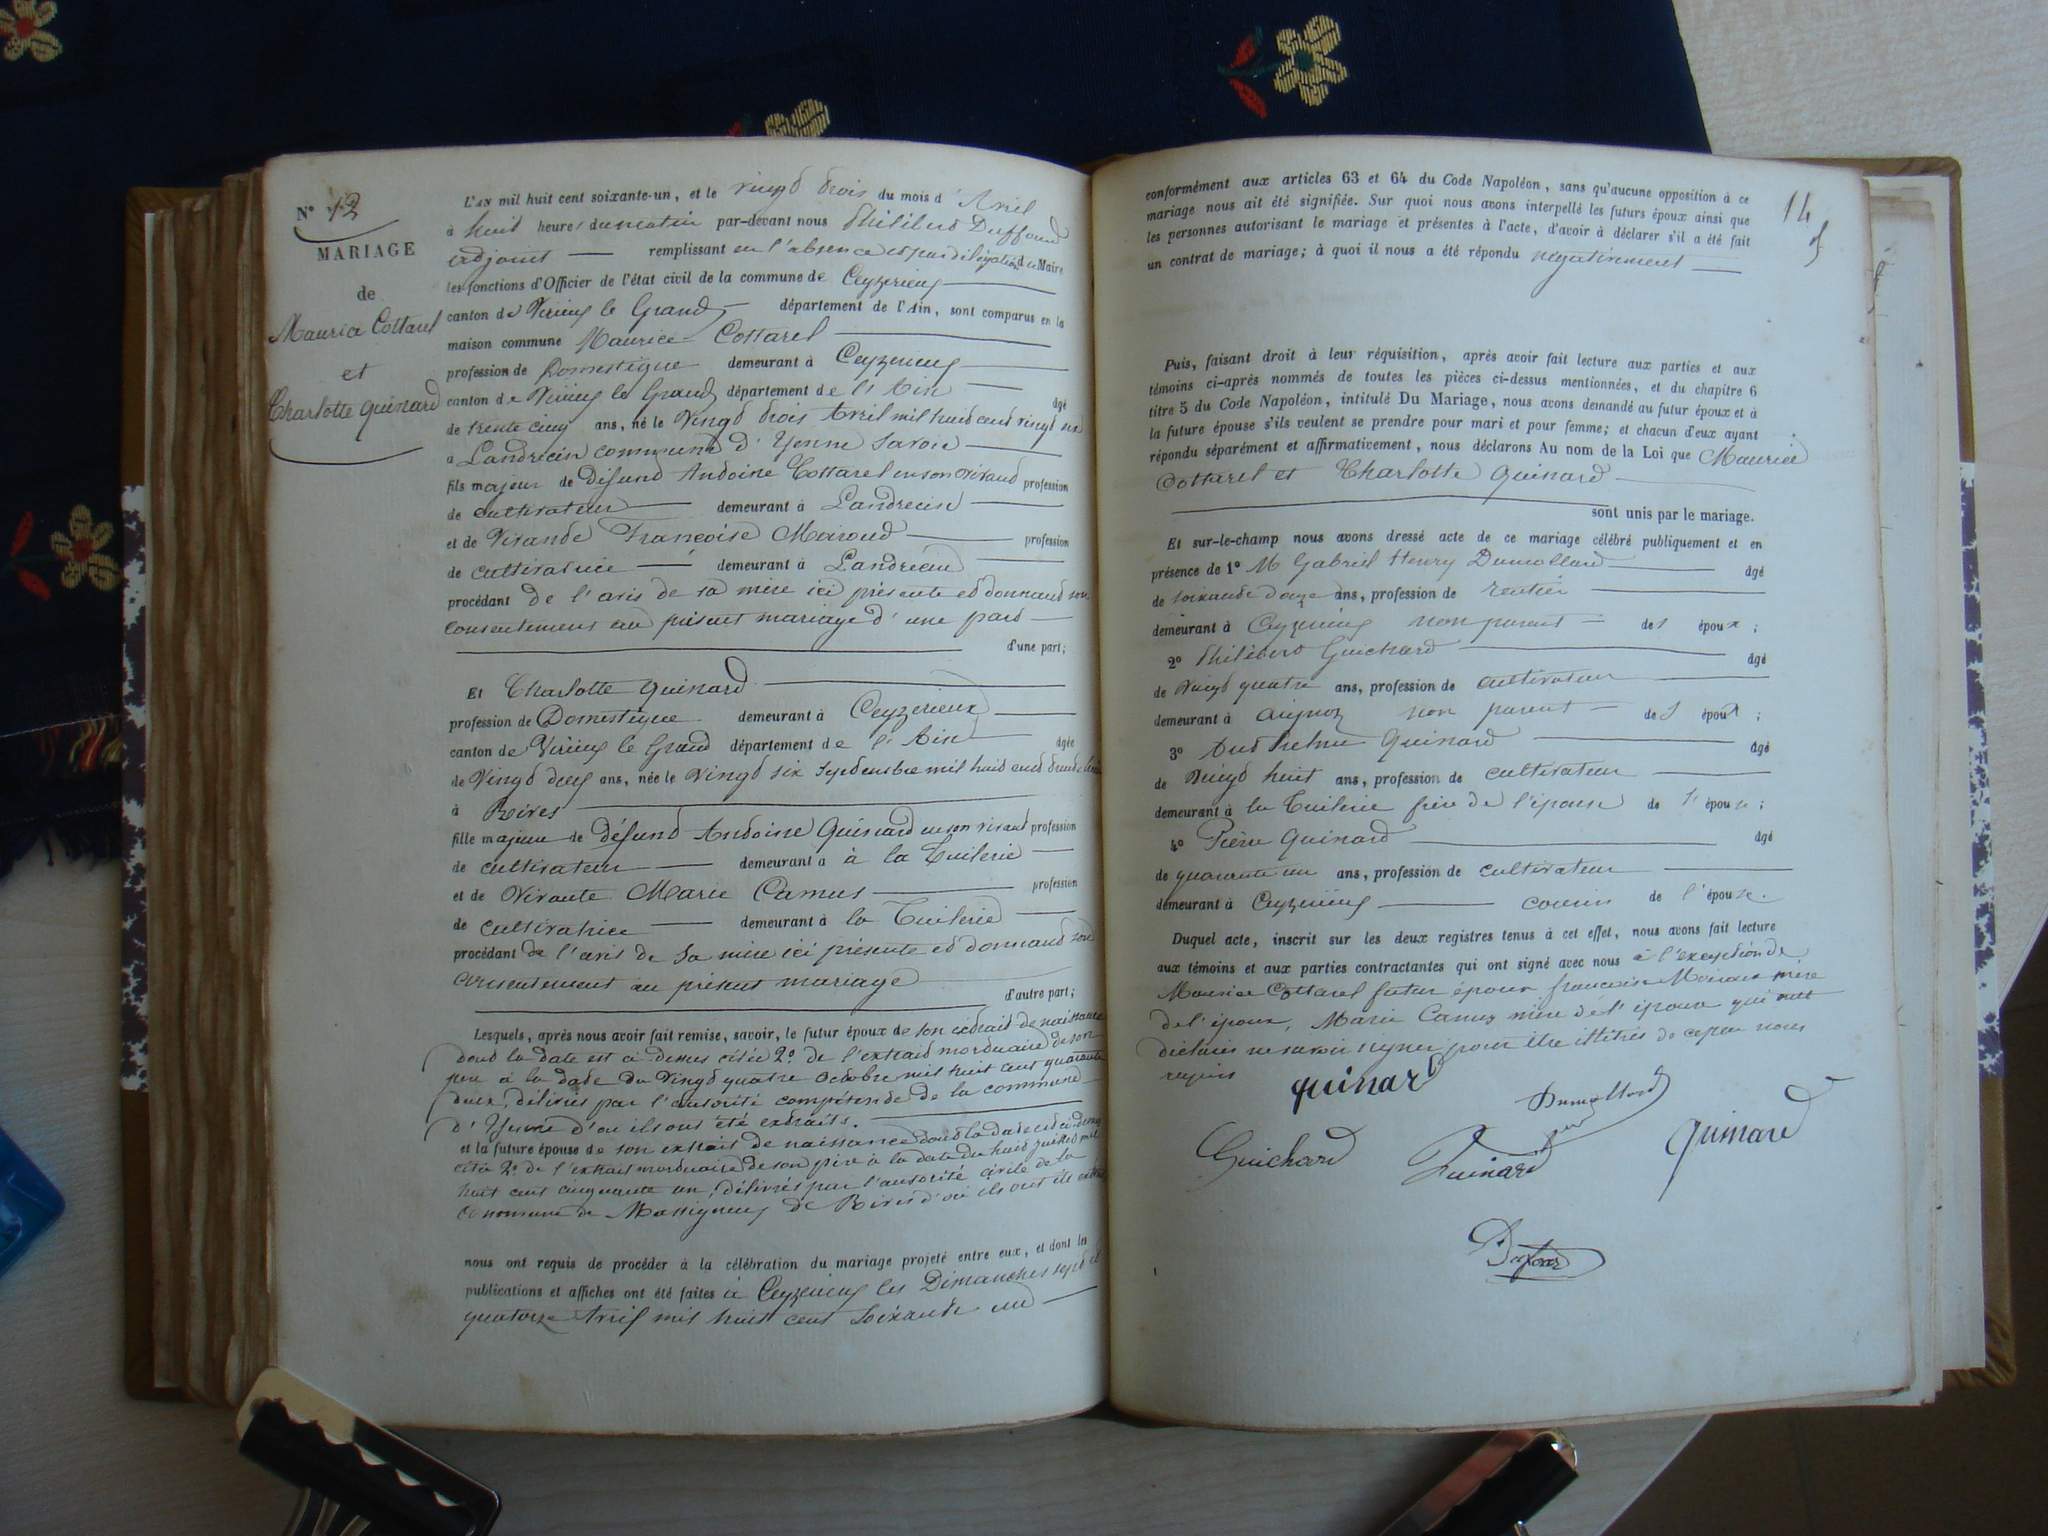 N° 12
MARIAGE
de
Maurice Cottarel
et
Charlotte Quinard
L'AN mil huit cent soixante-un, et le vingt trois du mois d'Avril
à huit heures du matin par-devant nous Philibert Duffourd
adjoint — remplissant en l'absence et par délégation du Maire
les fonctions d'Officier de l'état civil de la commune de Ceyzerieux
canton de Virieux le Grand département de l'Ain, sont comparus en la
maison commune Maurice Cottarel
profession de Domestique demeurant à Ceyzerieux
canton de Virieux le Grand département de l'Ain âgé
de trente cinq ans, né le Vingt trois Avril mil huit cent vingt six
à Landrecin commune d'Yenne Savoie
fils majeur de défunt Antoine Cottarel en son vivant profession
de cultivateur demeurant à Landrecin
et de Vivante Françoise profession
de cultivatrice demeurant à Landrecin
procédant de l'avis de sa mère ici présente et donnant son
consentement au présent mariage d'une part
d'une part;
Et Charlotte Quinard
profession de Domestique demeurant à Ceyzerieux
canton de Virieux le Grand département de l'Ain âgée
de Vingt deux ans, née le Vingt six Septembre mil huit cent trente huit
à Rives
fille majeure de défunt Antoine Quinard en son vivant profession
de cultivateur demeurant à à la Tuilerie
et de Vivante Marie Camus profession
de cultivatrice demeurant à la Tuilerie
procédant de l'avis de sa mère ici présente et donnant son
consentement au présent mariage
d'autre part;
Lesquels, après nous avoir fait remise, savoir, le futur époux de son extrait de naissance
dont la date est ci dessus citée 2° de l'extrait mortuaire de son
père à la date du Vingt quatre Octobre mil huit cent quarante
deux, délivrés par l'autorité compétende de la commune
d'Yenne d'ou ils ont été extraits.
et la future épouse de son extrait de naissance dont la date est ci-dessus
citée 2° de l'extrait mortuaire de son père à la date du huit juillet mil
huit cent cinquante un, délivrés par l'autorité civile de la
commune de Massignieux de Rives d'où ils ont été extraits
nous ont requis de procéder à la célébration du mariage projeté entre eux, et dont les
publications et affiches ont été faites à Ceyzerieux les Dimanches sept et
quatorze Avril mil huit cent soixante un
14
conformément aux articles 63 et 64 du Code Napoléon, sans qu'aucune opposition à ce
mariage nous ait été signifiée. Sur quoi nous avons interpellé les futurs époux ainsi que
les personnes autorisant le mariage et présentes à l'acte, d'avoir à déclarer s'il a été fait
un contrat de mariage; à quoi il nous a été répondu négativement
Puis, faisant droit à leur réquisition, après avoir fait lecture aux parties et aux
témoins ci-après nommés de toutes les pièces ci-dessus mentionnées, et du chapitre 6
titre 5 du Code Napoléon, intitulé Du Mariage, nous avons demandé au futur époux et à
la future épouse s'ils veulent se prendre pour mari et pour femme; et chacun d'eux ayant
répondu séparément et affirmativement, nous déclarons Au nom de la Loi que Maurice
Cottarel et Charlotte Quinard
sont unis par le mariage.
Et sur-le-champ nous avons dressé acte de ce mariage célébré publiquement et en
présence de 1° M Gabriel Henry Dumollard âgé
de soixante douze ans, profession de rentier
demeurant à Ceyzerieux non parent des époux;
2° Philibert Guichard âgé
de Vingt quatre ans, profession de cultivateur
demeurant à Aignoz non parent des époux;
3° Anthelme Quinard âgé
de Vingt huit ans, profession de cultivateur
demeurant à la Tuilerie frère de l'épouse de l'épouse;
4° Pierre Quinard âgé
de quarante un ans, profession de cultivateur
demeurant à Ceyzerieux cousin de l'épouse.
Duquel acte, inscrit sur les deux registres tenus à cet effet, nous avons fait lecture
aux témoins et aux parties contractantes qui ont signé avec nous à l'exception de
Maurice Cottarel futur époux françoise mère
de l'époux, Marie Camus mère de l'épouse qui ont
déclarés ne savoir signer pour être illitrés de ce par nous
requis
Quinard
Dumollard
Guichard
Quinard
Quinard
Dufourd